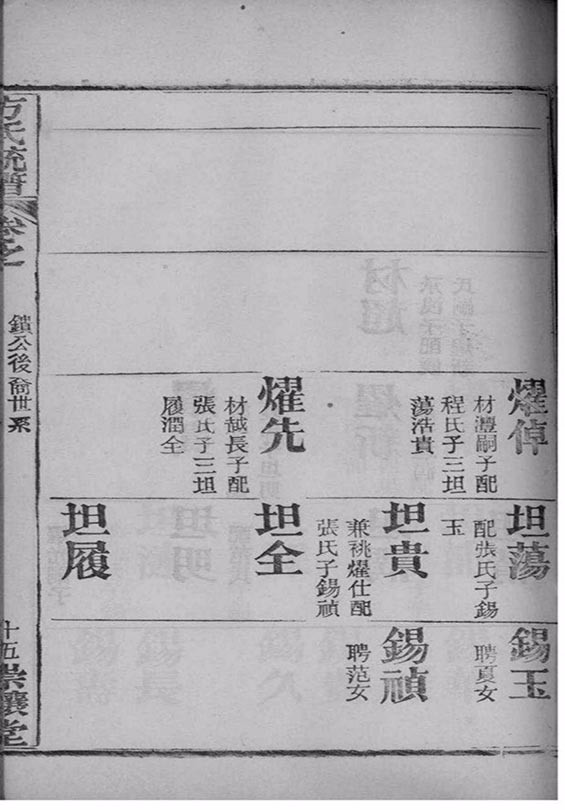 燿倬
材灃嗣子配
程氏子三坦
蕩浩貴
燿先
材越長子配
張氏子三坦
履潤全
坦蕩
配張氏子錫
玉
坦貴
兼祧燿仕配
張氏子錫禎
坦全
坦履
錫玉
聘夏女
錫禎
聘范女
方氏統譜
卷之
鎮公後裔世系
十五
崇讓堂